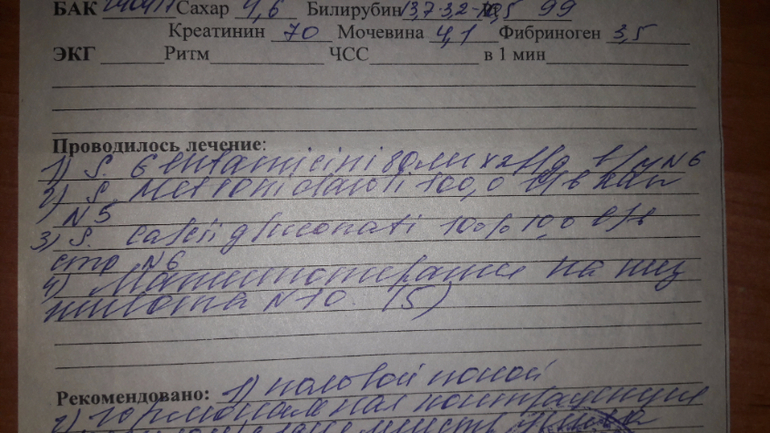 БАК Сахар 4,6 Билирубин 13,7-3,2-10,5 99
Креатинин 70 Мочевина 4,1 Фибриноген 3,5
ЭКГ Ритм ЧСС в 1 мин
Проводилось лечение:
1) S. Gentamicini 80 мг x 2 р/д в/м N6
2) S. Metronidazoli 100,0 в/в кап
N5
3) S. Calcii gluconati 10% 10,0 в/в
стр N6
4) Магнитотерапия на низ
живота N10. (5)
Рекомендовано: 1) половой покой
2) гормональная контрацепция